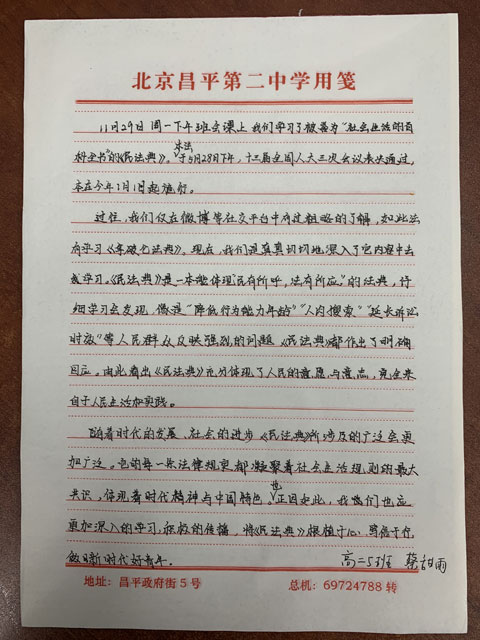 北京昌平第二中学用笺
11月29日周一下午班会课上我们学习了被喜为“社会生活的百
科全书”的《民法典》。本法于5月28日下午,十三届全国人大三次会议表决通过,
本在今年1月1日起施行。
过往,我们仅在微博等社交平台中有过粗略的了解,如此法
有学习《民法典》。现在,我们是真真切切地深入了它内容中去
来学习。《民法典》是一本能体现“民有所呼,法有所应”的法典,仔
细学习会发现,像是“降低行为能力年龄”“人肉搜索”“延长诉讼
时效”等人民群众反映强烈的问题《民法典》都作出了明确
回应。由此看出《民法典》充分体现了人民的意愿与意志,完全来
自于人民生活和实践。
随着时代的发展,社会的进步《民法典》所涉及的广泛会更
加广泛。它的每一条法律规定都凝聚着社会生活规则的最大
共识,体现着时代精神与中国特色。也正因如此,我们也应
更加深入的学习,积极的传播,将《民法典》根植于心,笃信于行
做日新时代好青年。
高二5班 蔡甜雨
地址:昌平政府街5号 总机:69724788转